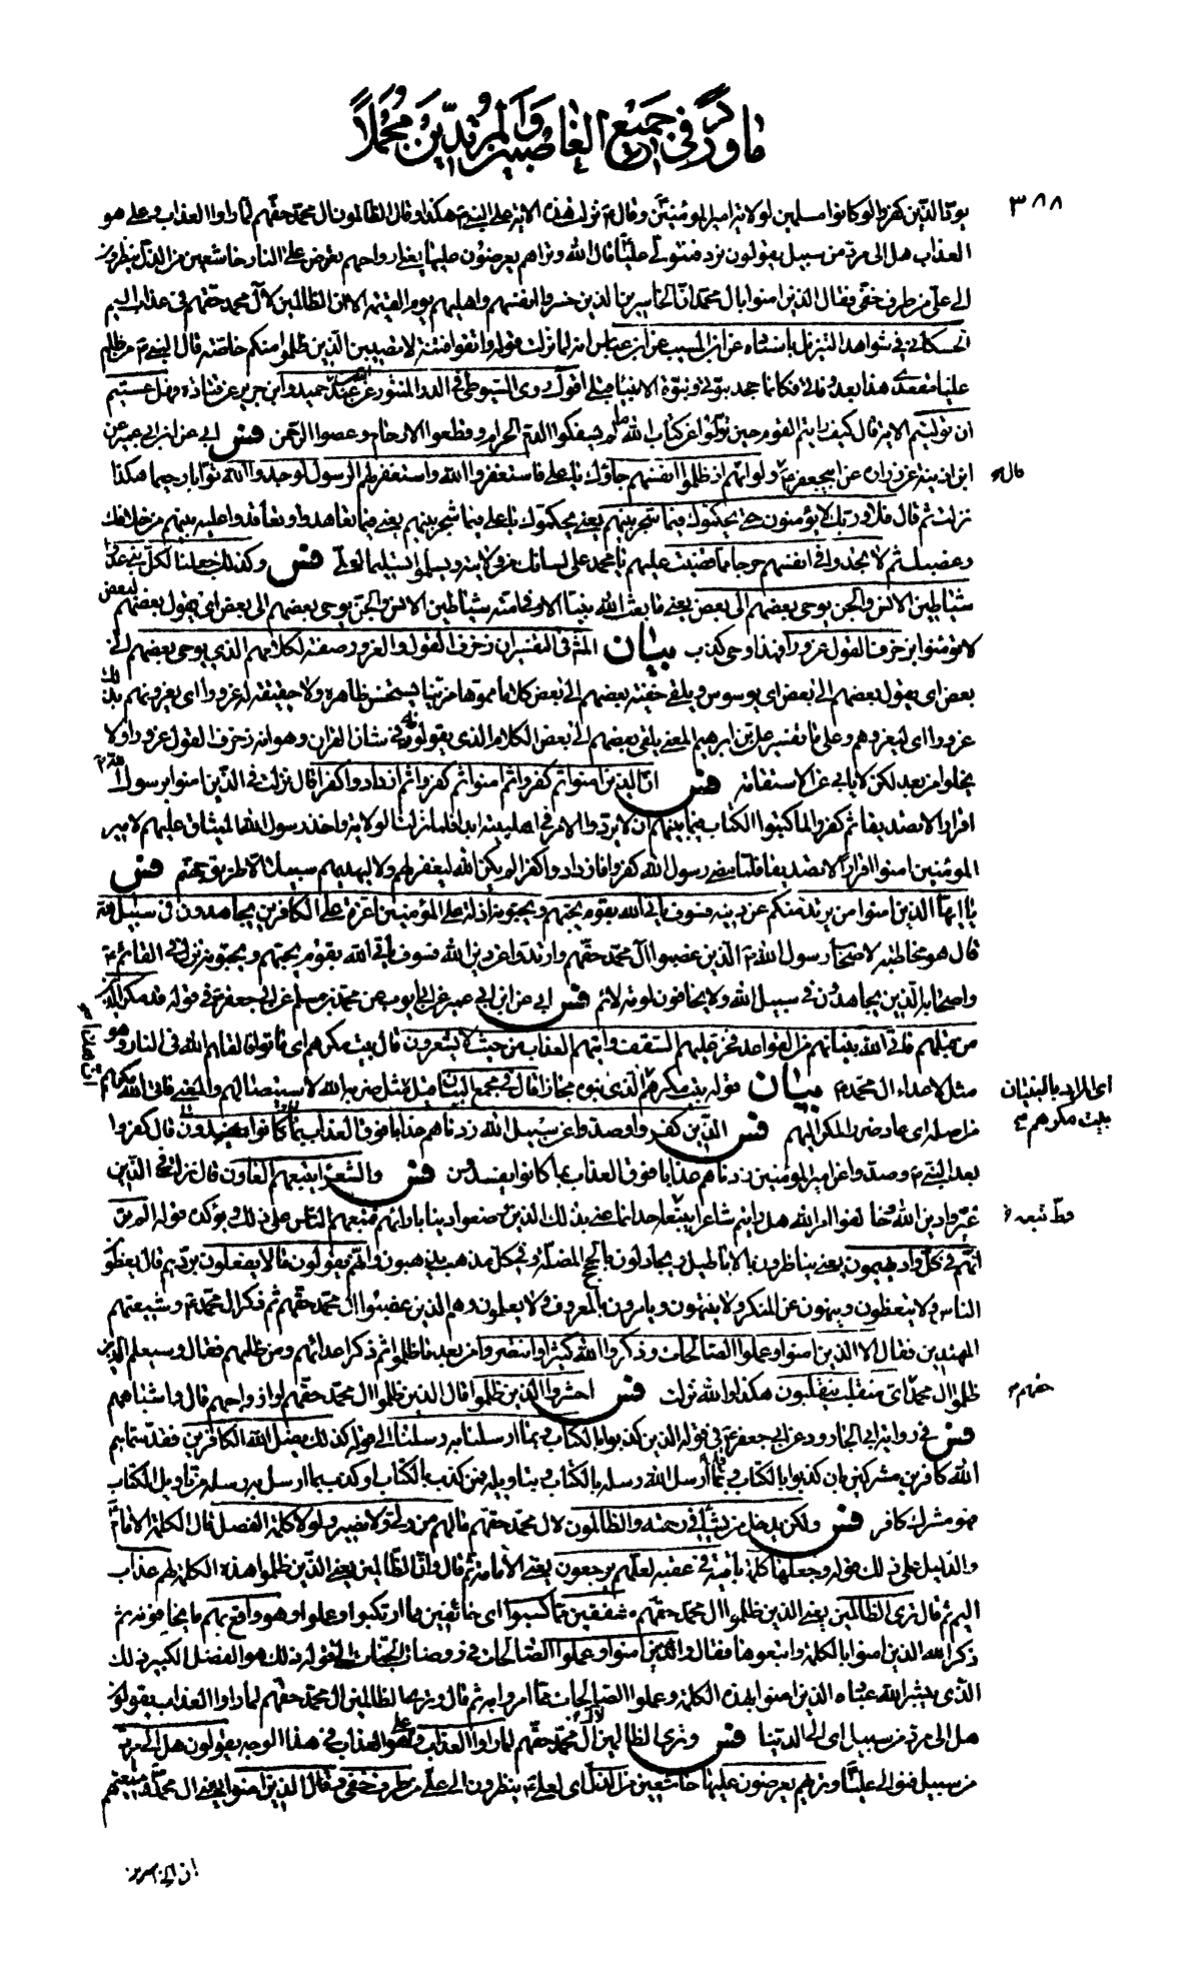 ما ورد في جميع الغاصبين والمرتدين مجملاً
٣٨٨
يود الذين كفروا لو كانوا مسلمين لولاية امير المؤمنين وقال نزلت هذه الاية على النبي هكذا وقال الظالمون ال محمد حقهم لما راوا العذاب وعلي هو
العذاب هل الى مرد من سبيل يقولون نرد فنتولى عليا قال الله وتراهم يعرضون عليها يعني ارواحهم تعرض على النار خاشعين من الذل ينظرون
الى علي من طرف خفي فقال الذين امنوا بال محمد ان الخاسرين الذين خسروا انفسهم واهليهم يوم القيمة الا ان الظالمين لال محمد حقهم في عذاب اليم
الحسكاني في شواهد التنزيل باسناده عن ابن المسيب عن ابن عباس انه لما نزلت قوله واتقوا فتنة لا تصيبن الذين ظلموا منكم خاصة قال النبي من ظلم
عليا مقعدي هذا بعد وفاتي فكانما جحد نبوتي ونبوة الانبياء قبلي اقول روى السيوطي في الدر المنثور عن عبد بن حميد وابن جرير عن قتادة فهل عسيتم
ان توليتم الاية قال كيف رايتم القوم حين تولوا عن كتاب الله الم يسفكوا الدم الحرام وقطعوا الارحام وعصوا الرحمن فس ابي عن ابن ابي عمير عن
ابن اذينة عن زرارة عن ابي جعفر ولو انهم اذ ظلموا انفسهم جاؤك يا علي فاستغفروا الله واستغفر لهم الرسول لوجدوا الله توابا رحيما هكذا
قال
نزلت ثم قال فلا وربك لا يؤمنون حتى يحكموك فيما شجر بينهم يعني يحكموك يا علي فيما شجر بينهم يعني فيما تعاهدوا وتعاقدوا عليه بينهم من خلافك
وغصبك ثم لا يجدوا في انفسهم حرجا مما قضيت عليهم يا محمد على لسانك من ولايته ويسلموا تسليما لعلي فس وكذلك جعلنا لكل نبي عدوا
شياطين الانس والجن يوحي بعضهم الى بعض يعني ما بعث الله نبيا الا وفي امته شياطين الانس والجن يوحي بعضهم الى بعض اي يقول بعضهم لبعض
لا تؤمنوا بزخرف القول غرورا فهذا وحي كذب بيان المشهور في التفسير ان زخرف القول والغرور صفة لكلامهم الذي يوحي بعضهم الى
بعض اي يقول بعضهم الى بعض اي يوسوس ويلقي خفية بعضهم الى بعض كلاما مموها مزينا يستحسن ظاهره ولا حقيقة له غرورا اي يغرونهم بذلك
غرورا اي ليغروهم وعلى ما في تفسير علي بن ابراهيم المعنى يلقي بعضهم الى بعض الكلام الذي يقولونه في شان القران وهو انه زخرف القول غرورا ولا
يخلو من بعد لكن لا يابى عن الاستقامة فس ان الذين امنوا ثم كفروا ثم امنوا ثم كفروا ثم ازدادوا كفرا قال نزلت في الذين امنوا برسول الله
اقرارا لا تصديقا ثم كفروا لما كتبوا الكتاب فيما بينهم ان لا يردوا الامر في اهل بيته ابدا فلما نزلت الولاية واخذ رسول الله الميثاق عليهم لامير
المؤمنين امنوا اقرارا لا تصديقا فلما مضى رسول الله كفروا فازدادوا كفرا لم يكن الله ليغفر لهم ولا ليهديهم سبيلا الا طريق جهنم فس
يا ايها الذين امنوا من يرتد منكم عن دينه فسوف ياتي الله بقوم يحبهم ويحبونه اذلة على المؤمنين اعزة على الكافرين يجاهدون في سبيل الله
قال هو مخاطبة لاصحاب رسول الله الذين غصبوا ال محمد حقهم وارتدوا عن دين الله فسوف ياتي الله بقوم يحبهم ويحبونه نزل في القائم
واصحابه الذين يجاهدون في سبيل الله ولا يخافون لومة لائم فس ابي عن ابن ابي عمير عن ابي ايوب عن محمد بن مسلم عن ابي جعفر في قوله قد مكر الذين
من قبلهم فاتى الله بنيانهم من القواعد فخر عليهم السقف واتيهم العذاب من حيث لا يشعرون قال بيت مكرهم اي ماتوا فالقاهم الله في النار وهو
مثل لاعداء ال محمد بيان قوله بيت مكرهم الذي بنوه مجازا قال في مجمع البيان قيل هذا مثل ضربه الله لاستيصالهم والمعنى فاتى الله مكرهم
اي المراد بالبنيان
بيت مكرهم
من اصله اي عاد ضرر المكر اليهم فس الذين كفروا وصدوا عن سبيل الله زدناهم عذابا فوق العذاب بما كانوا يفسدون قال كفروا
بعد النبي وصدوا عن امير المؤمنين زدناهم عذابا فوق العذاب بما كانوا يفسدون فس والشعراء يتبعهم الغاون قال نزلت في الذين
غيروا دين الله وخالفوا امر الله هل رايتم شاعرا يتبعه احد انما عنى بذلك الذين وضعوا دينا بارائهم فتبعهم الناس على ذلك ويؤكد قوله الم تر
قط تبعه
انهم في كل واد يهيمون يعني يناظرون بالاباطيل ويجادلون بالحجج المضلة وفي كل مذهب يذهبون وانهم يقولون ما لا يفعلون قال يعظون
الناس ولا يتعظون وينهون عن المنكر ولا ينتهون ويامرون بالمعروف ولا يعملون وهم الذين غصبوا ال محمد حقهم ثم ذكر ال محمد وشيعتهم
المهتدين فقال الا الذين امنوا وعملوا الصالحات وذكروا الله كثيرا وانتصروا من بعد ما ظلموا ثم ذكر اعدائهم ومن ظلمهم فقال وسيعلم الذين
ظلموا ال محمد اي منقلب ينقلبون هكذا والله نزلت فس احشروا الذين ظلموا قال الذين ظلموا ال محمد حقهم وازواجهم قال واشباههم
حقهم
فس في رواية ابي الجارود عن ابي جعفر في قوله الذين كذبوا بالكتاب وبما ارسلنا به رسلنا الى قوله كذلك يضل الله الكافرين فقد سماهم
الله كافرين مشركين بان كذبوا بالكتاب وبما ارسل الله رسله بالكتاب وبتاويله فمن كذب بالكتاب او كذب بما ارسل به رسله من تاويل الكتاب
فهو مشرك كافر فس ولكن يدخل من يشاء في رحمته والظالمون لال محمد حقهم مالهم من ولي ولا نصير ولولا كلمة الفصل قال الكلمة الامام
والدليل على ذلك قوله وجعلها كلمة باقية في عقبه لعلهم يرجعون يعني الامامة ثم قال وان الظالمين يعني الذين ظلموا هذه الكلمة لهم عذاب
اليم ثم قال ترى الظالمين يعني الذين ظلموا ال محمد حقهم مشفقين مما كسبوا اي خائفين مما ارتكبوا وعملوا وهو واقع بهم ما يخافونه ثم
ذكر الله الذين امنوا بالكلمة واتبعوها فقال والذين امنوا وعملوا الصالحات في روضات الجنات الى قوله ذلك هو الفضل الكبير ذلك
الذي يبشر الله عباده الذين امنوا بهذه الكلمة وعملوا الصالحات مما امروا به ثم قال وترى الظالمين ال محمد حقهم لما راوا العذاب يقولون
هل الى مرد من سبيل اي الى الدنيا فس وترى الظالمين ال محمد حقهم لما راوا العذاب وعلي هو العذاب في هذا الوجه يقولون هل الى مرد
من سبيل فنوالي عليا وتراهم يعرضون عليها خاشعين من الذل اي لعلي ينظرون الى علي من طرف خفي وقال الذين امنوا يعني ال محمد وشيعتهم
ان الخاسرين